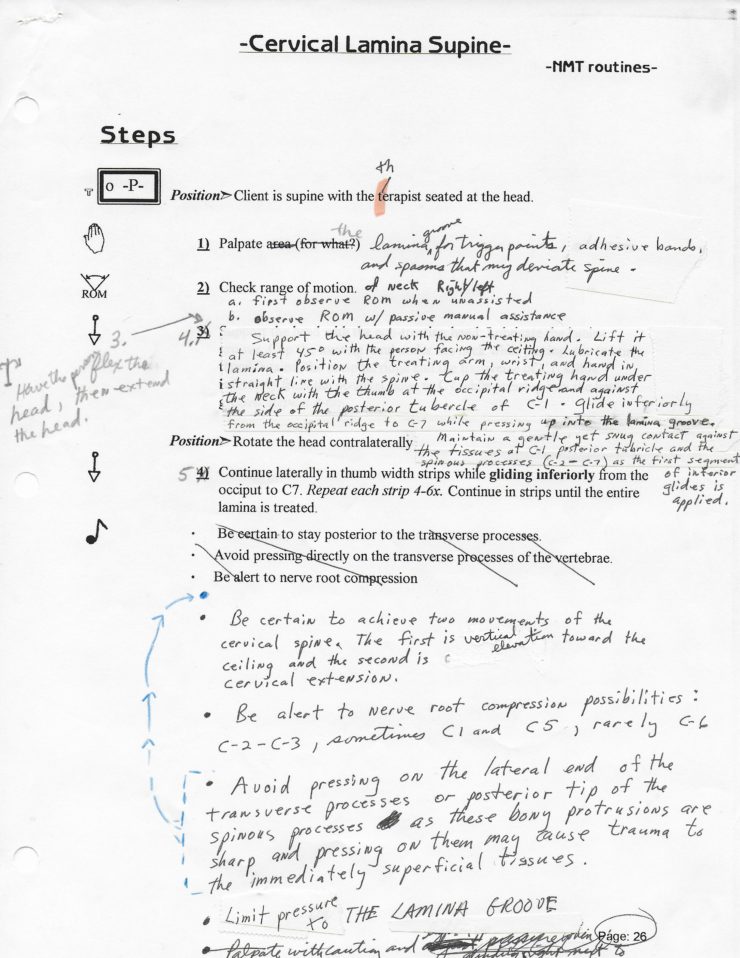 -Cervical Lamina Supine-
-NMT routines-
Steps
th
o -P-
Position> Client is supine with the terapist seated at the head.
1) Palpate area (for what?) the lamina groove for trigger points, adhesive bands,
and spasms that may deviate spine.
2) Check range of motion. of neck Right/left
ROM
a. first observe ROM when unassisted
b. observe ROM w/ passive manual assistance
3. 4. 3) Support the head with the non-treating hand. Lift it
at least 45° with the person facing the ceiling. Lubricate the
lamina. Position the treating arm, wrist, and hand in
straight line with the spine. Cup the treating hand under
the neck with the thumb at the occipital ridge and against
the side of the posterior tubercle of C-1. Glide inferiorly
from the occipital ridge to C-7 while pressing up into the lamina groove.
Have the flex the
head, then extend
the head.
Position> Rotate the head contralaterally Maintain a gentle yet snug contact against
the tissues at C-1 posterior tubricle and the
spinous processes (C-2 - C-7) as the first segment
of inferior
glides is
applied.
5 4) Continue laterally in thumb width strips while gliding inferiorly from the
occiput to C7. Repeat each strip 4-6x. Continue in strips until the entire
lamina is treated.
· Be certain to stay posterior to the transverse processes.
· Avoid pressing directly on the transverse processes of the vertebrae.
· Be alert to nerve root compression
• Be certain to achieve two movements of the
cervical spine. The first is vertical elevation toward the
ceiling and the second is
cervical extension.
• Be alert to nerve root compression possibilities:
C-2-C-3, sometimes C1 and C5, rarely C-6
• Avoid pressing on the lateral end of the
transverse processes or posterior tip of the
spinous processes as these bony protrusions are
sharp and pressing on them may cause trauma to
the immediately superficial tissues.
• Limit pressure to THE LAMINA GROOVE
• Palpate with caution and
Page: 26